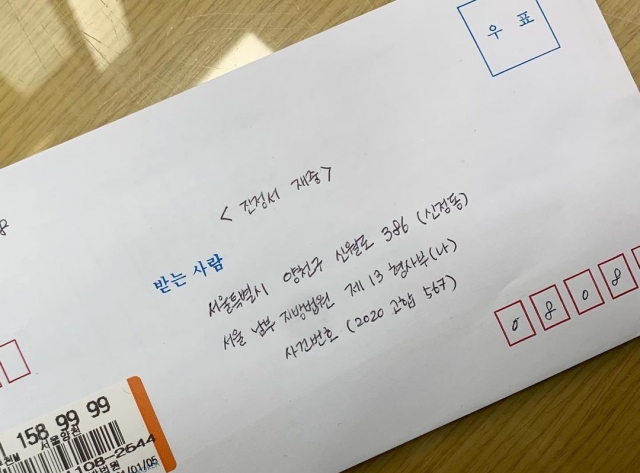 우 표
< 진정서 재중 >
받는 사람
서울특별시 양천구 신월로 386 (신정동)
서울 남부 지방법원 제 13 형사부(나)
사건번호 (2020 고합 567)
0 8 0 8
8
158 99 99
서울양천
108-2644
/01/05